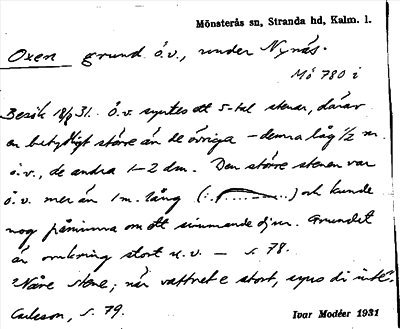 Mönsterås sn, Stranda hd, Kalm. l.
Oxen grund ö.v., under Nynäs.
Mö 780 i
Besök 18/8 31. Ö.v. syntes ett 5-tal stenar, därav
en betydligt större än de övriga – denna låg 1/2 m.
ö.v., de andra 1–2 dm. Den större stenen var
ö.v. mer än 1 m. lång (: ) och kunde
nog påminna om ett simmande djur. Grundet
är omkring stort u.v. – s. 78.
Nåre stene; när vattnet e stort, syns di inte.
Carlsson, s. 79.
Ivar Modéer 1931